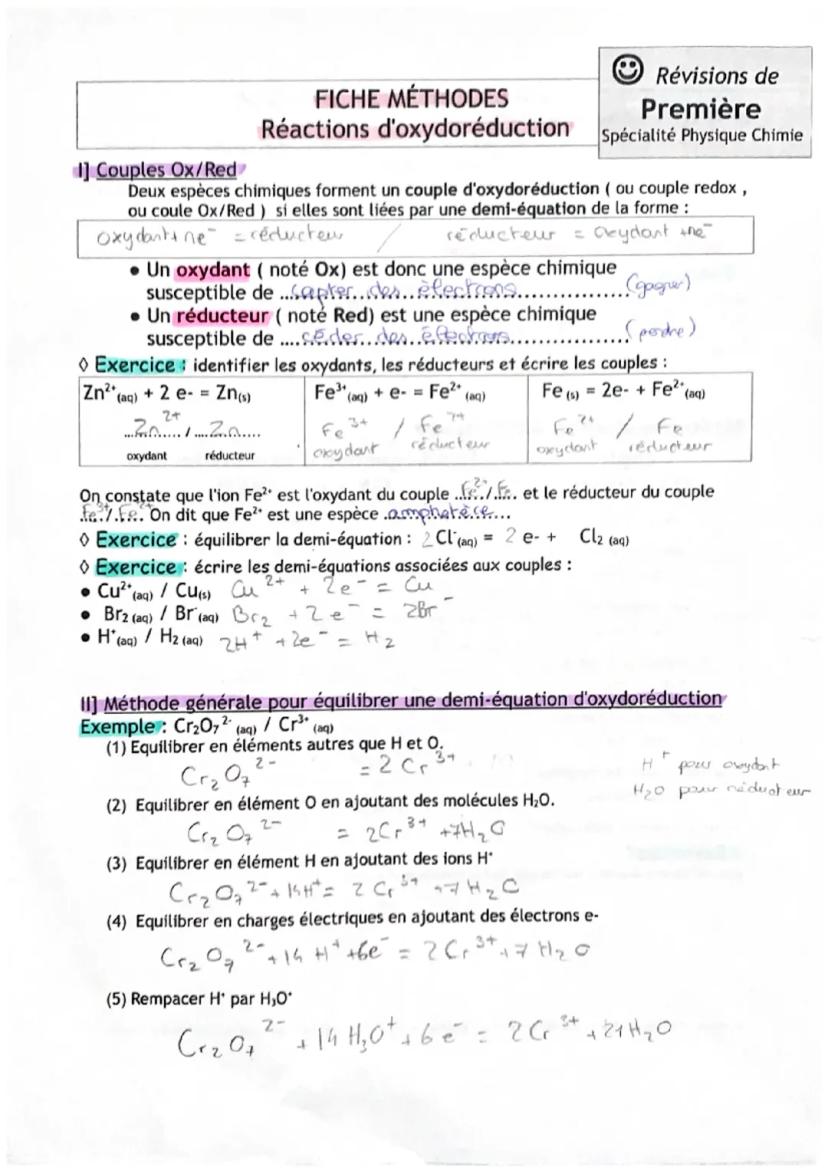 FICHE MÉTHODES
Réactions d'oxydoréduction
Révisions de
Première
Spécialité Physique Chimie
I] Couples Ox/Red
Deux espèces chimiques forment un couple d'oxydoréduction ( ou couple redox ,
ou coule Ox/Red ) si elles sont liées par une demi-équation de la forme :
oxydant + ne⁻ = réducteur / réducteur = oxydant + ne⁻
• Un oxydant ( noté Ox) est donc une espèce chimique
susceptible de ...capter...des...électrons................ (gagner)
• Un réducteur ( noté Red) est une espèce chimique
susceptible de ....céder...des...électrons................ (perdre)
◊ Exercice : identifier les oxydants, les réducteurs et écrire les couples :
Zn²⁺(aq) + 2 e- = Zn(s) Fe³⁺(aq) + e- = Fe²⁺ (aq) Fe (s) = 2e- + Fe²⁺(aq)
...Zn²⁺...../....Zn..... Fe³⁺ / Fe²⁺ Fe²⁺ / Fe
oxydant réducteur oxydant réducteur oxydant réducteur
On constate que l'ion Fe²⁺ est l'oxydant du couple ..Fe²⁺./.Fe.. et le réducteur du couple
.Fe³⁺./.Fe²⁺. On dit que Fe²⁺ est une espèce .amphotèce....
◊ Exercice : équilibrer la demi-équation : 2 Cl⁻(aq) = 2 e- + Cl₂ (aq)
◊ Exercice : écrire les demi-équations associées aux couples :
• Cu²⁺(aq) / Cu(s) Cu²⁺ + 2e⁻ = Cu
• Br₂ (aq) / Br⁻(aq) Br₂ + 2e⁻ = 2Br⁻
• H⁺(aq) / H₂ (aq) 2H⁺ + 2e⁻ = H₂
II] Méthode générale pour équilibrer une demi-équation d'oxydoréduction
Exemple : Cr₂O₇²⁻ (aq) / Cr³⁺ (aq)
(1) Equilibrer en éléments autres que H et O.
Cr₂O₇²⁻ = 2 Cr³⁺
H⁺ pour oxydant
H₂O pour réducteur
(2) Equilibrer en élément O en ajoutant des molécules H₂O.
Cr₂O₇²⁻ = 2Cr³⁺ + 7H₂O
(3) Equilibrer en élément H en ajoutant des ions H⁺
Cr₂O₇²⁻ + 14H⁺ = 2 Cr³⁺ + 7 H₂O
(4) Equilibrer en charges électriques en ajoutant des électrons e-
Cr₂O₇²⁻ + 14 H⁺ + 6e⁻ = 2 Cr³⁺ + 7 H₂O
(5) Rempacer H⁺ par H₃O⁺
Cr₂O₇²⁻ + 14 H₃O⁺ + 6 e⁻ = 2 Cr³⁺ + 21 H₂O